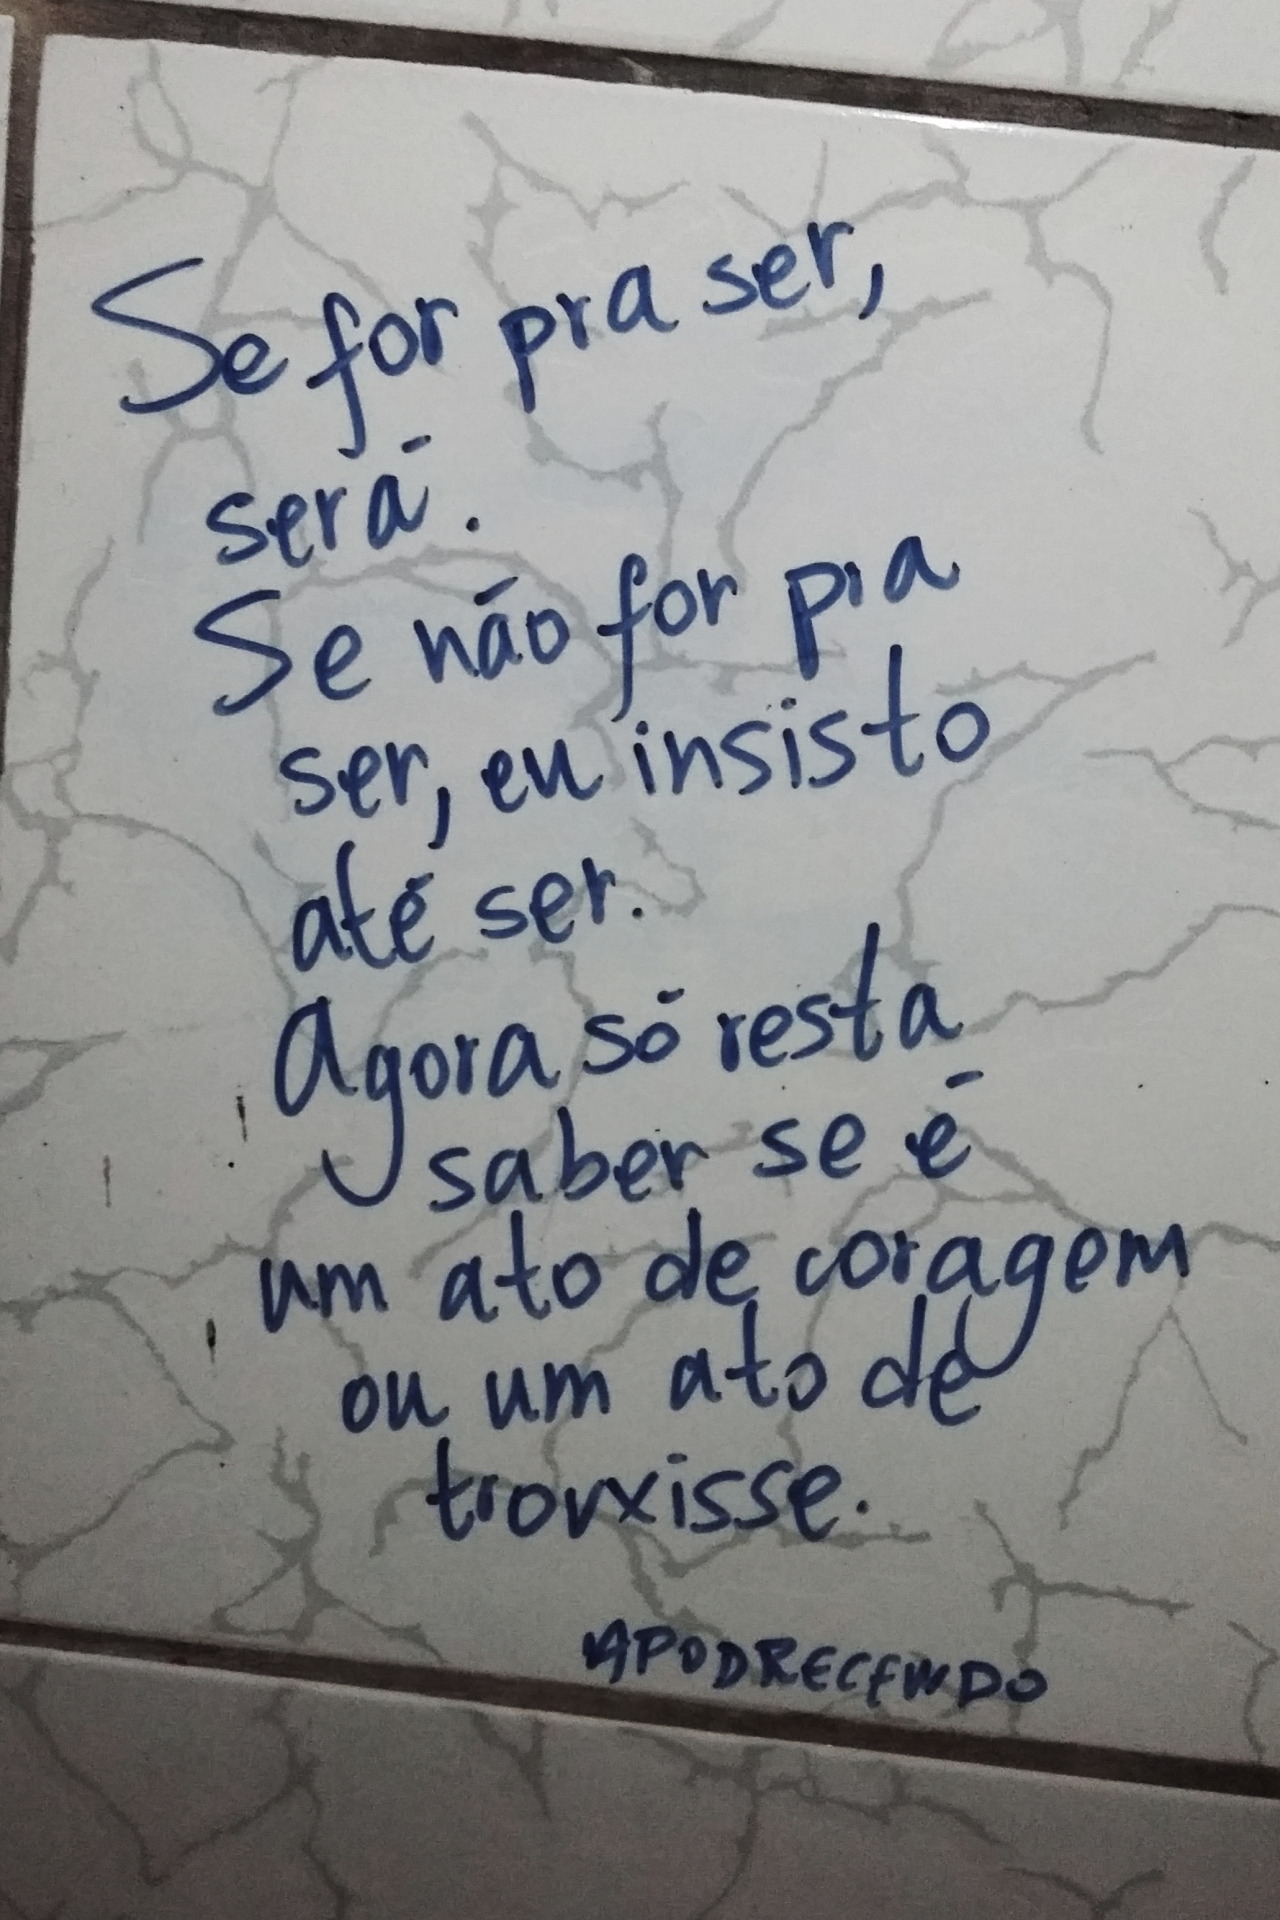 Se for pra ser,
será.
Se não for pra
ser, eu insisto
até ser.
Agora só resta
saber se é
um ato de coragem
ou um ato de
trouxisse.
APODRECENDO